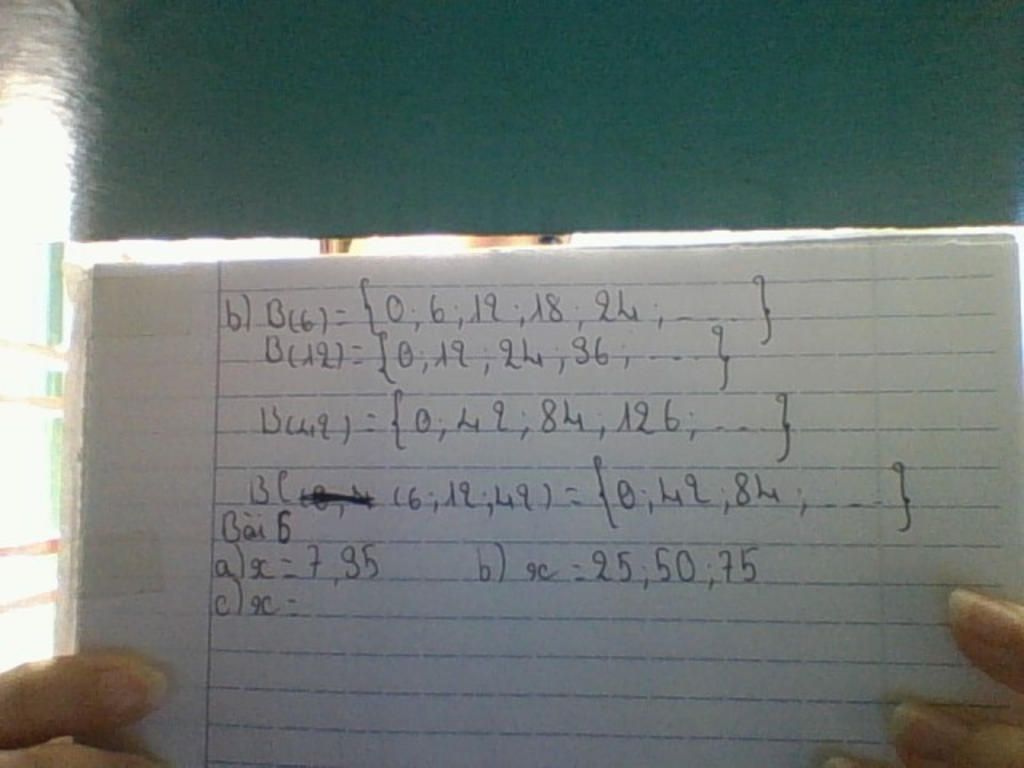 b) B(6) = {0; 6; 12; 18; 24; ......}
B(12) = {0; 12; 24; 36; ......}
B(42) = {0; 42; 84; 126; ....}
B( (6; 12; 42) = {0; 42; 84; ......}
Bài 5
a) x = 7, 35 b) x = 25; 50; 75
c) x =